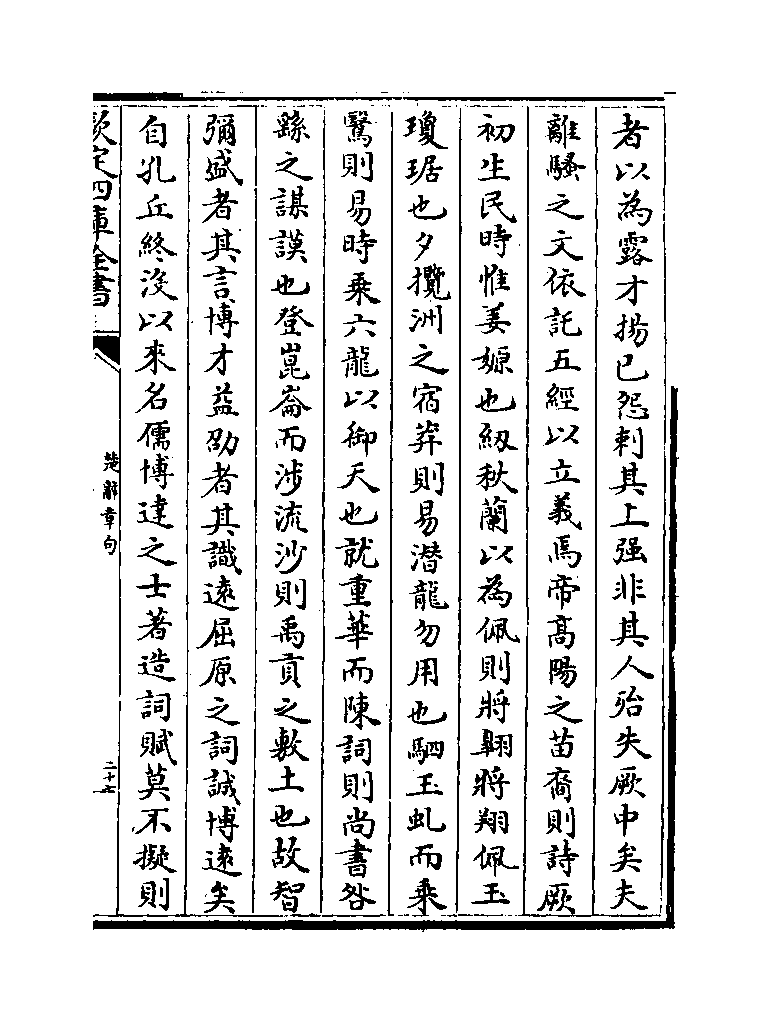 者以為露才揚已怨刺其上强非其人殆失厥中矣夫
離騷之文依託五經以立義焉帝高陽之苗裔則詩厥
初生民時惟姜嫄也紉秋蘭以為佩則將翱將翔佩玉
瓊琚也夕攬洲之宿莽則易潛龍勿用也駟玉虬而乘
鷖則易時乘六龍以御天也就重華而陳詞則尚書咎
繇之謀謨也登崑崙而涉流沙則禹貢之敷土也故智
彌盛者其言博才益劭者其識遠屈原之詞誠博遠矣
自孔丘終沒以來名儒博達之士著造詞賦莫不擬則
欽定四庫全書
楚辭章句
二十七